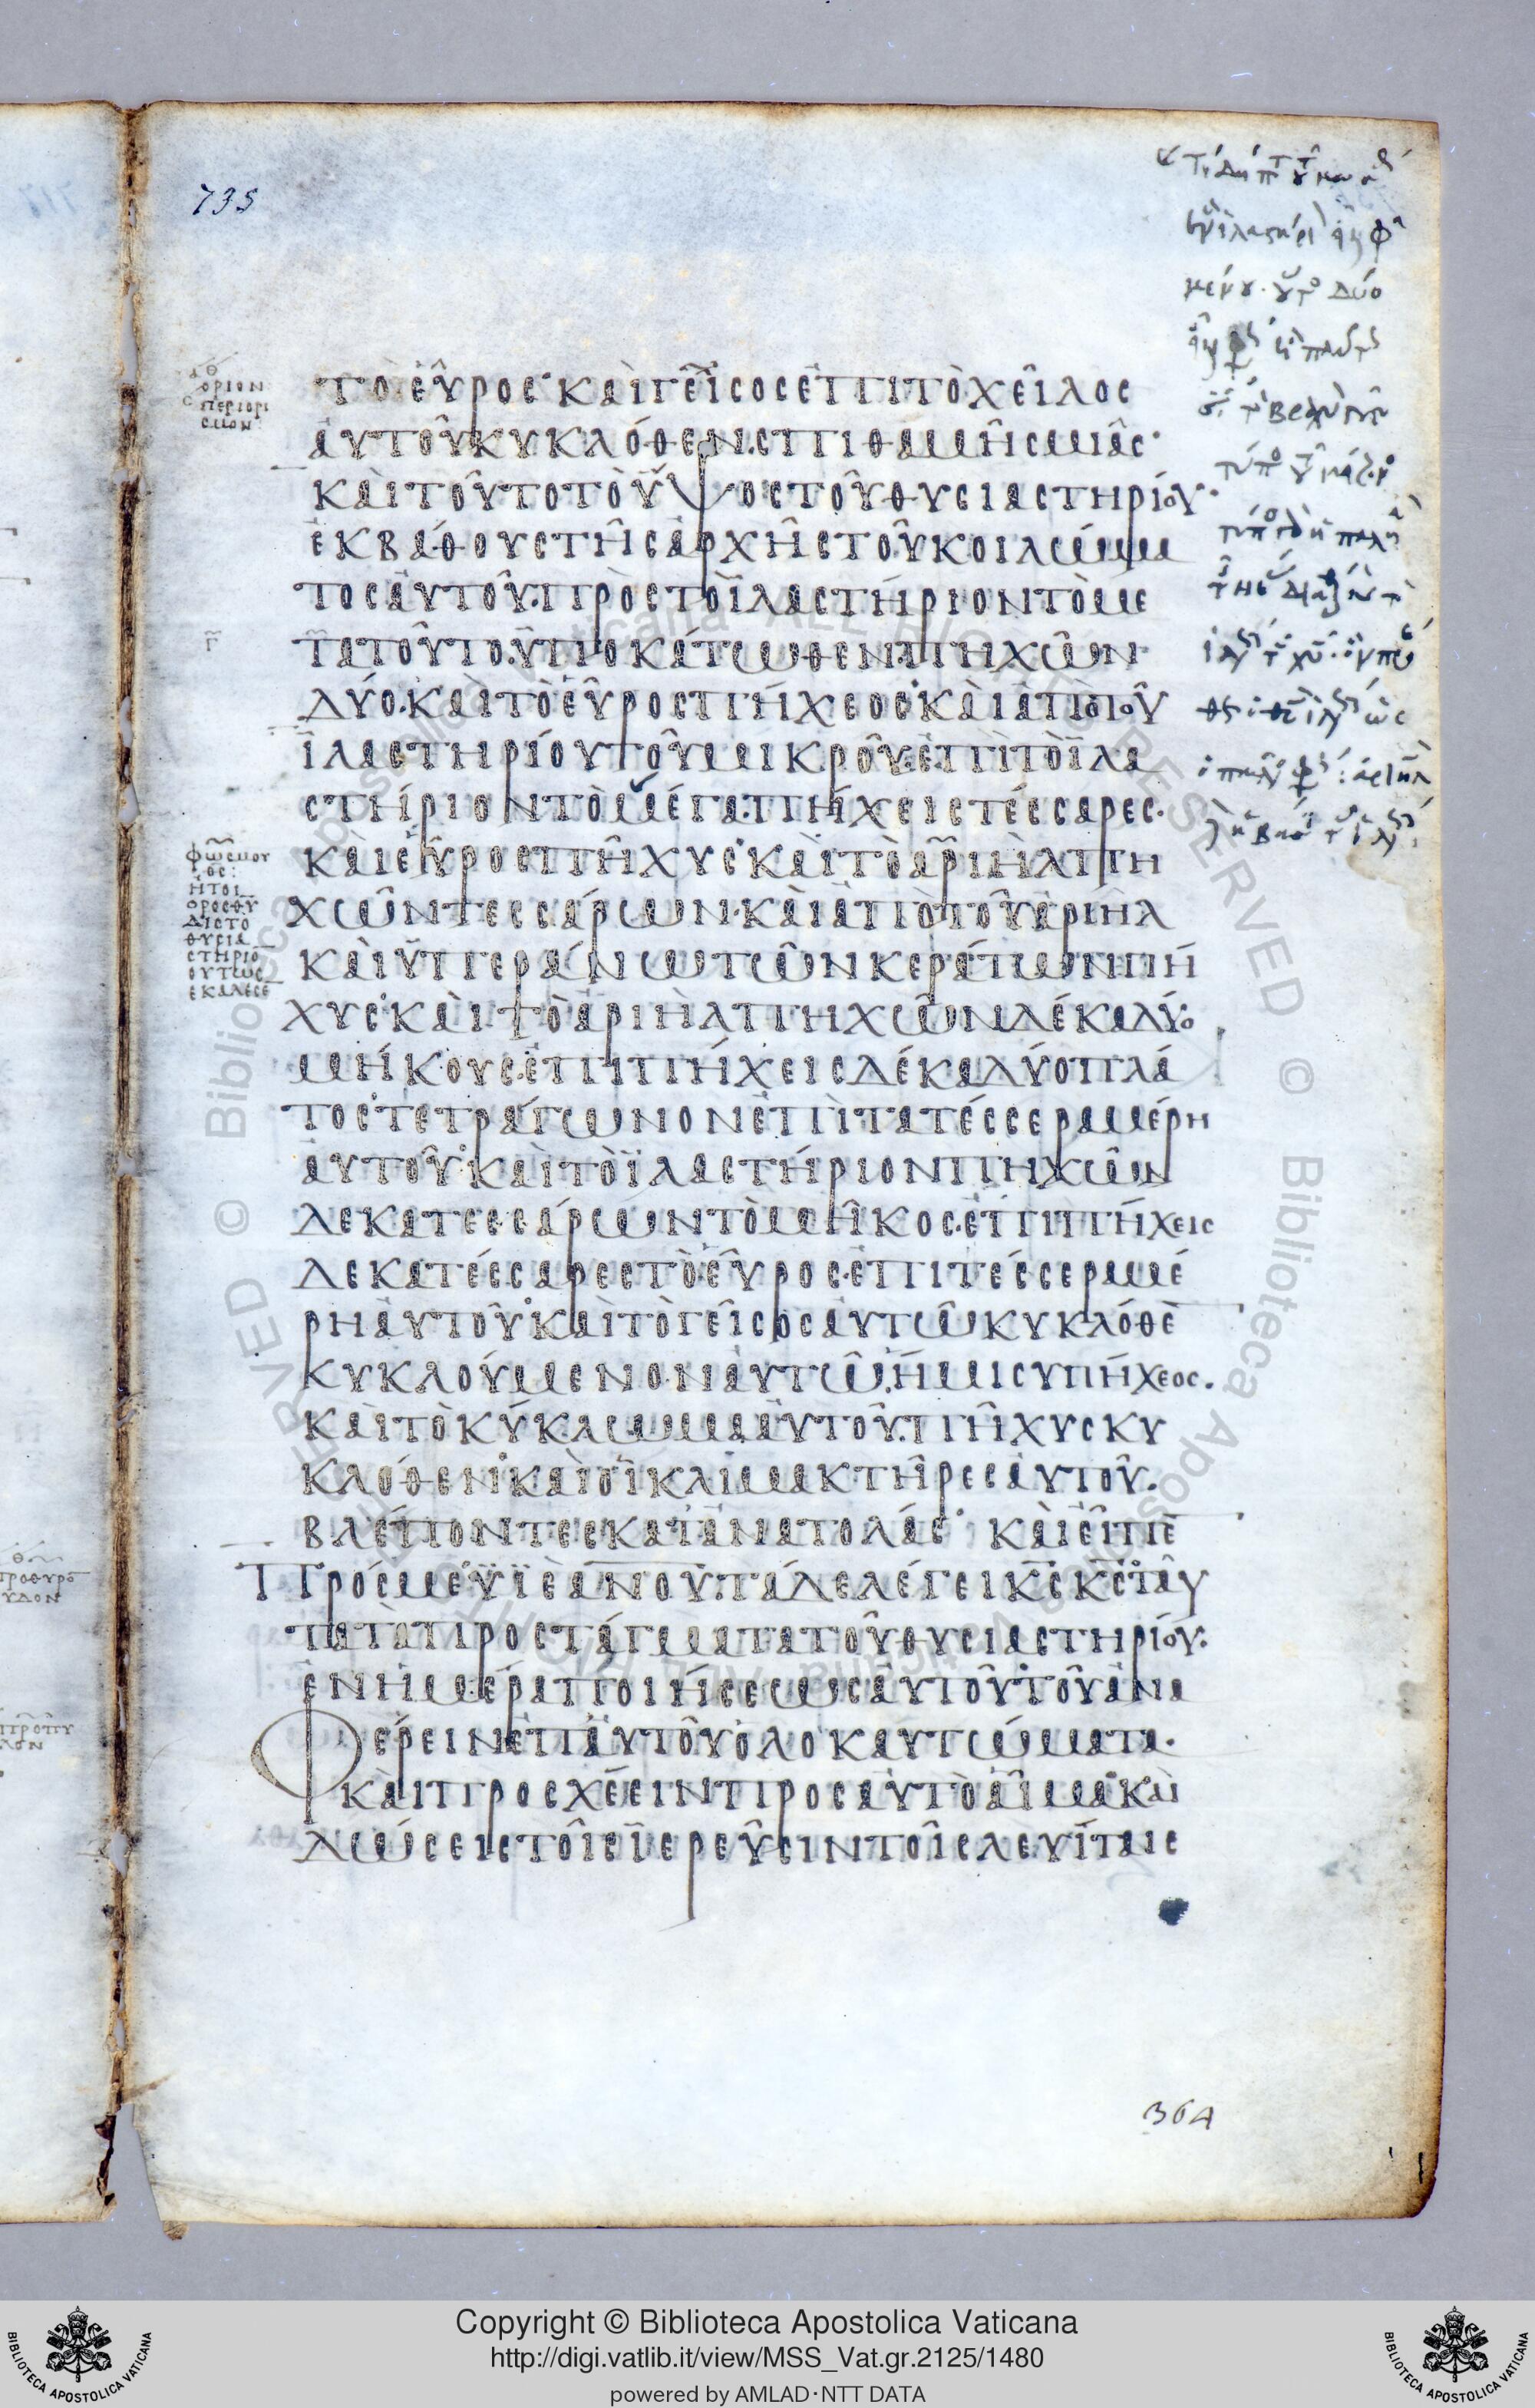 735
ΤΟ ΕΥΡΟΣ ΚΑΙ ΓΕΙΣΟΣ ΕΠΙ ΤΟ ΧΕΙΛΟΣ
ΑΥΤΟΥ ΚΥΚΛΟΘΕΝ ΣΠΙΘΑΜΗΣ ΜΙΑΣ·
ΚΑΙ ΤΟΥΤΟ ΤΟ ΥΨΟΣ ΤΟΥ ΘΥΣΙΑΣΤΗΡΙΟΥ·
ΕΚ ΒΑΘΟΥΣ ΤΗΣ ΑΡΧΗΣ ΤΟΥ ΚΟΙΛΩΜΑ
ΤΟΣ ΑΥΤΟΥ· ΠΡΟΣ ΤΟ ΙΛΑΣΤΗΡΙΟΝ ΤΟ ΜΕ
ΓΑ ΤΟΥΤΟ ΥΠΟΚΑΤΩΘΕΝ ΠΗΧΩΝ
ΔΥΟ· ΚΑΙ ΤΟ ΕΥΡΟΣ ΠΗΧΕΟΣ· ΚΑΙ ΑΠΟ ΤΟΥ
ΙΛΑΣΤΗΡΙΟΥ ΤΟΥ ΜΙΚΡΟΥ· ΕΠΙ ΤΟ ΙΛΑ
ΣΤΗΡΙΟΝ ΤΟ ΜΕΓΑ· ΠΗΧΕΙΣ ΤΕΣΣΑΡΕΣ·
ΚΑΙ ΕΥΡΟΣ ΠΗΧΥΣ· ΚΑΙ ΤΟ ΑΡΙΗΛ ΠΗ
ΧΩΝ ΤΕΣΣΑΡΩΝ· ΚΑΙ ΑΠΟ ΤΟΥ ΑΡΙΗΛ
ΚΑΙ ΥΠΕΡΑΝΩ ΤΩΝ ΚΕΡΑΤΩΝ ΠΗ
ΧΥΣ· ΚΑΙ ΤΟ ΑΡΙΗΛ ΠΗΧΩΝ ΔΕΚΑΔΥΟ
ΜΗΚΟΥΣ· ΕΠΙ ΠΗΧΕΙΣ ΔΕΚΑΔΥΟ ΠΛΑ
ΤΟΣ· ΤΕΤΡΑΓΩΝΟΝ ΕΠΙ ΤΑ ΤΕΣΣΕΡΑ ΜΕΡΗ
ΑΥΤΟΥ· ΚΑΙ ΤΟ ΙΛΑΣΤΗΡΙΟΝ ΠΗΧΩΝ
ΔΕΚΑΤΕΣΣΑΡΩΝ ΤΟ ΜΗΚΟΣ· ΕΠΙ ΠΗΧΕΙΣ
ΔΕΚΑΤΕΣΣΑΡΕΣ ΤΟ ΕΥΡΟΣ· ΕΠΙ ΤΕΣΣΕΡΑ ΜΕ
ΡΗ ΑΥΤΟΥ· ΚΑΙ ΤΟ ΓΕΙΣΟΣ ΑΥΤΩ ΚΥΚΛΟΘΕ̄
ΚΥΚΛΟΥΜΕΝΟΝ ΑΥΤΩ· ΗΜΙΣΥ ΠΗΧΕΟΣ.
ΚΑΙ ΤΟ ΚΥΚΛΩΜΑ ΑΥΤΟΥ· ΠΗΧΥΣ ΚΥ
ΚΛΟΘΕΝ· ΚΑΙ ΟΙ ΚΛΙΜΑΚΤΗΡΕΣ ΑΥΤΟΥ·
ΒΛΕΠΟΝΤΕΣ ΚΑΤ ΑΝΑΤΟΛΑΣ· ΚΑΙ ΕΙΠΕ̄
ΠΡΟΣ ΜΕ· ΥΙΕ ΑΝΟΥ· ΤΑΔΕ ΛΕΓΕΙ ΚΣ ΚΣ· ΤΑΥ
ΤΑ ΤΑ ΠΡΟΣΤΑΓΜΑΤΑ ΤΟΥ ΘΥΣΙΑΣΤΗΡΙΟΥ·
ΕΝ ΗΜΕΡΑ ΠΟΙΗΣΕΩΣ ΑΥΤΟΥ· ΤΟΥ ΑΝΑ
ΦΕΡΕΙΝ ΕΠ ΑΥΤΟΥ ΟΛΟΚΑΥΤΩΜΑΤΑ·
ΚΑΙ ΠΡΟΣΧΕΕΙΝ ΠΡΟΣ ΑΥΤΟ ΑΙΜΑ· ΚΑΙ
ΔΩΣΕΙΣ ΤΟΙΣ ΙΕΡΕΥΣΙΝ ΤΟΙΣ ΛΕΥΙΤΑΙΣ
ΟΡΙΟΝ
ΠΕΡΙΟΡΙ
ΣΜΟΝ
ΦΩΣ ΜΟΥ
ΘΣ:
ΗΤΟΙ
ΟΡΟΣ ΘΥ
ΔΙΣ ΤΟ
ΘΥΣΙΑ
ΣΤΗΡΙΟ̄
ΟΥΤΩΣ
ΕΚΑΛΕΣΕ
364
Copyright © Biblioteca Apostolica Vaticana
http://digi.vatlib.it/view/MSS_Vat.gr.2125/1480
powered by AMLAD·NTT DATA